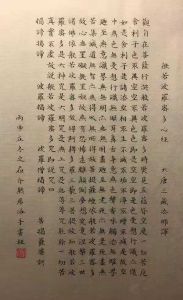 般若波羅蜜多心經
大唐三藏法師譯
觀自在菩薩行深般若波羅蜜多時照見五蘊皆空度一切苦厄
舍利子色不異空空不異色色即是空空即是色受想行識亦復
如是舍利子是諸法空相不生不滅不垢不淨不增不減是故空
中無色無受想行識無眼耳鼻舌身意無色聲香味觸法無眼界
乃至無意識界無無明亦無無明盡乃至無老死亦無老死盡無
苦集滅道無智亦無得以無所得故菩提薩埵依般若波羅蜜多
故心無罣礙無罣礙故無有恐怖遠離顛倒夢想究竟涅槃三世
諸佛依般若波羅蜜多故得阿耨多羅三藐三菩提故知般若波
羅蜜多是大神咒是大明咒是無上咒是無等等咒能除一切苦
真實不虛故說般若波羅蜜多咒即說咒曰
揭諦揭諦 波羅揭諦 波羅僧揭諦 菩提薩婆訶
丙申